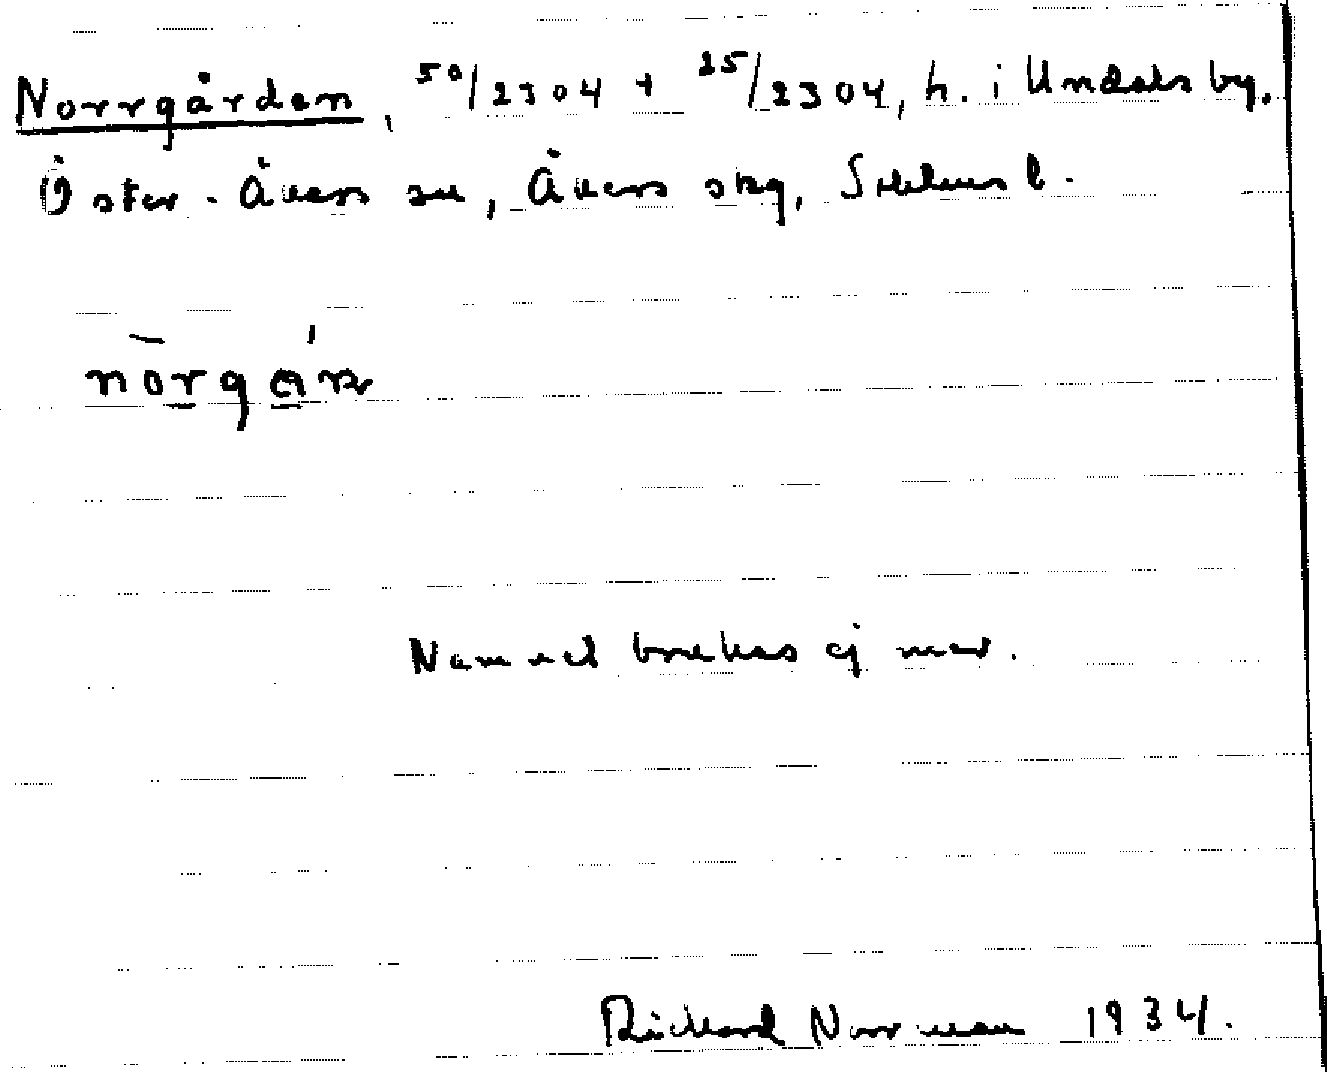 Norrgården, 50/2304 + 25/2304, h. i Undals by,
Öster-Åkers sn, Åkers skg, Sthlms l.
nòrgán
Namnet brukas ej mer.
Richard Norrman 1934.